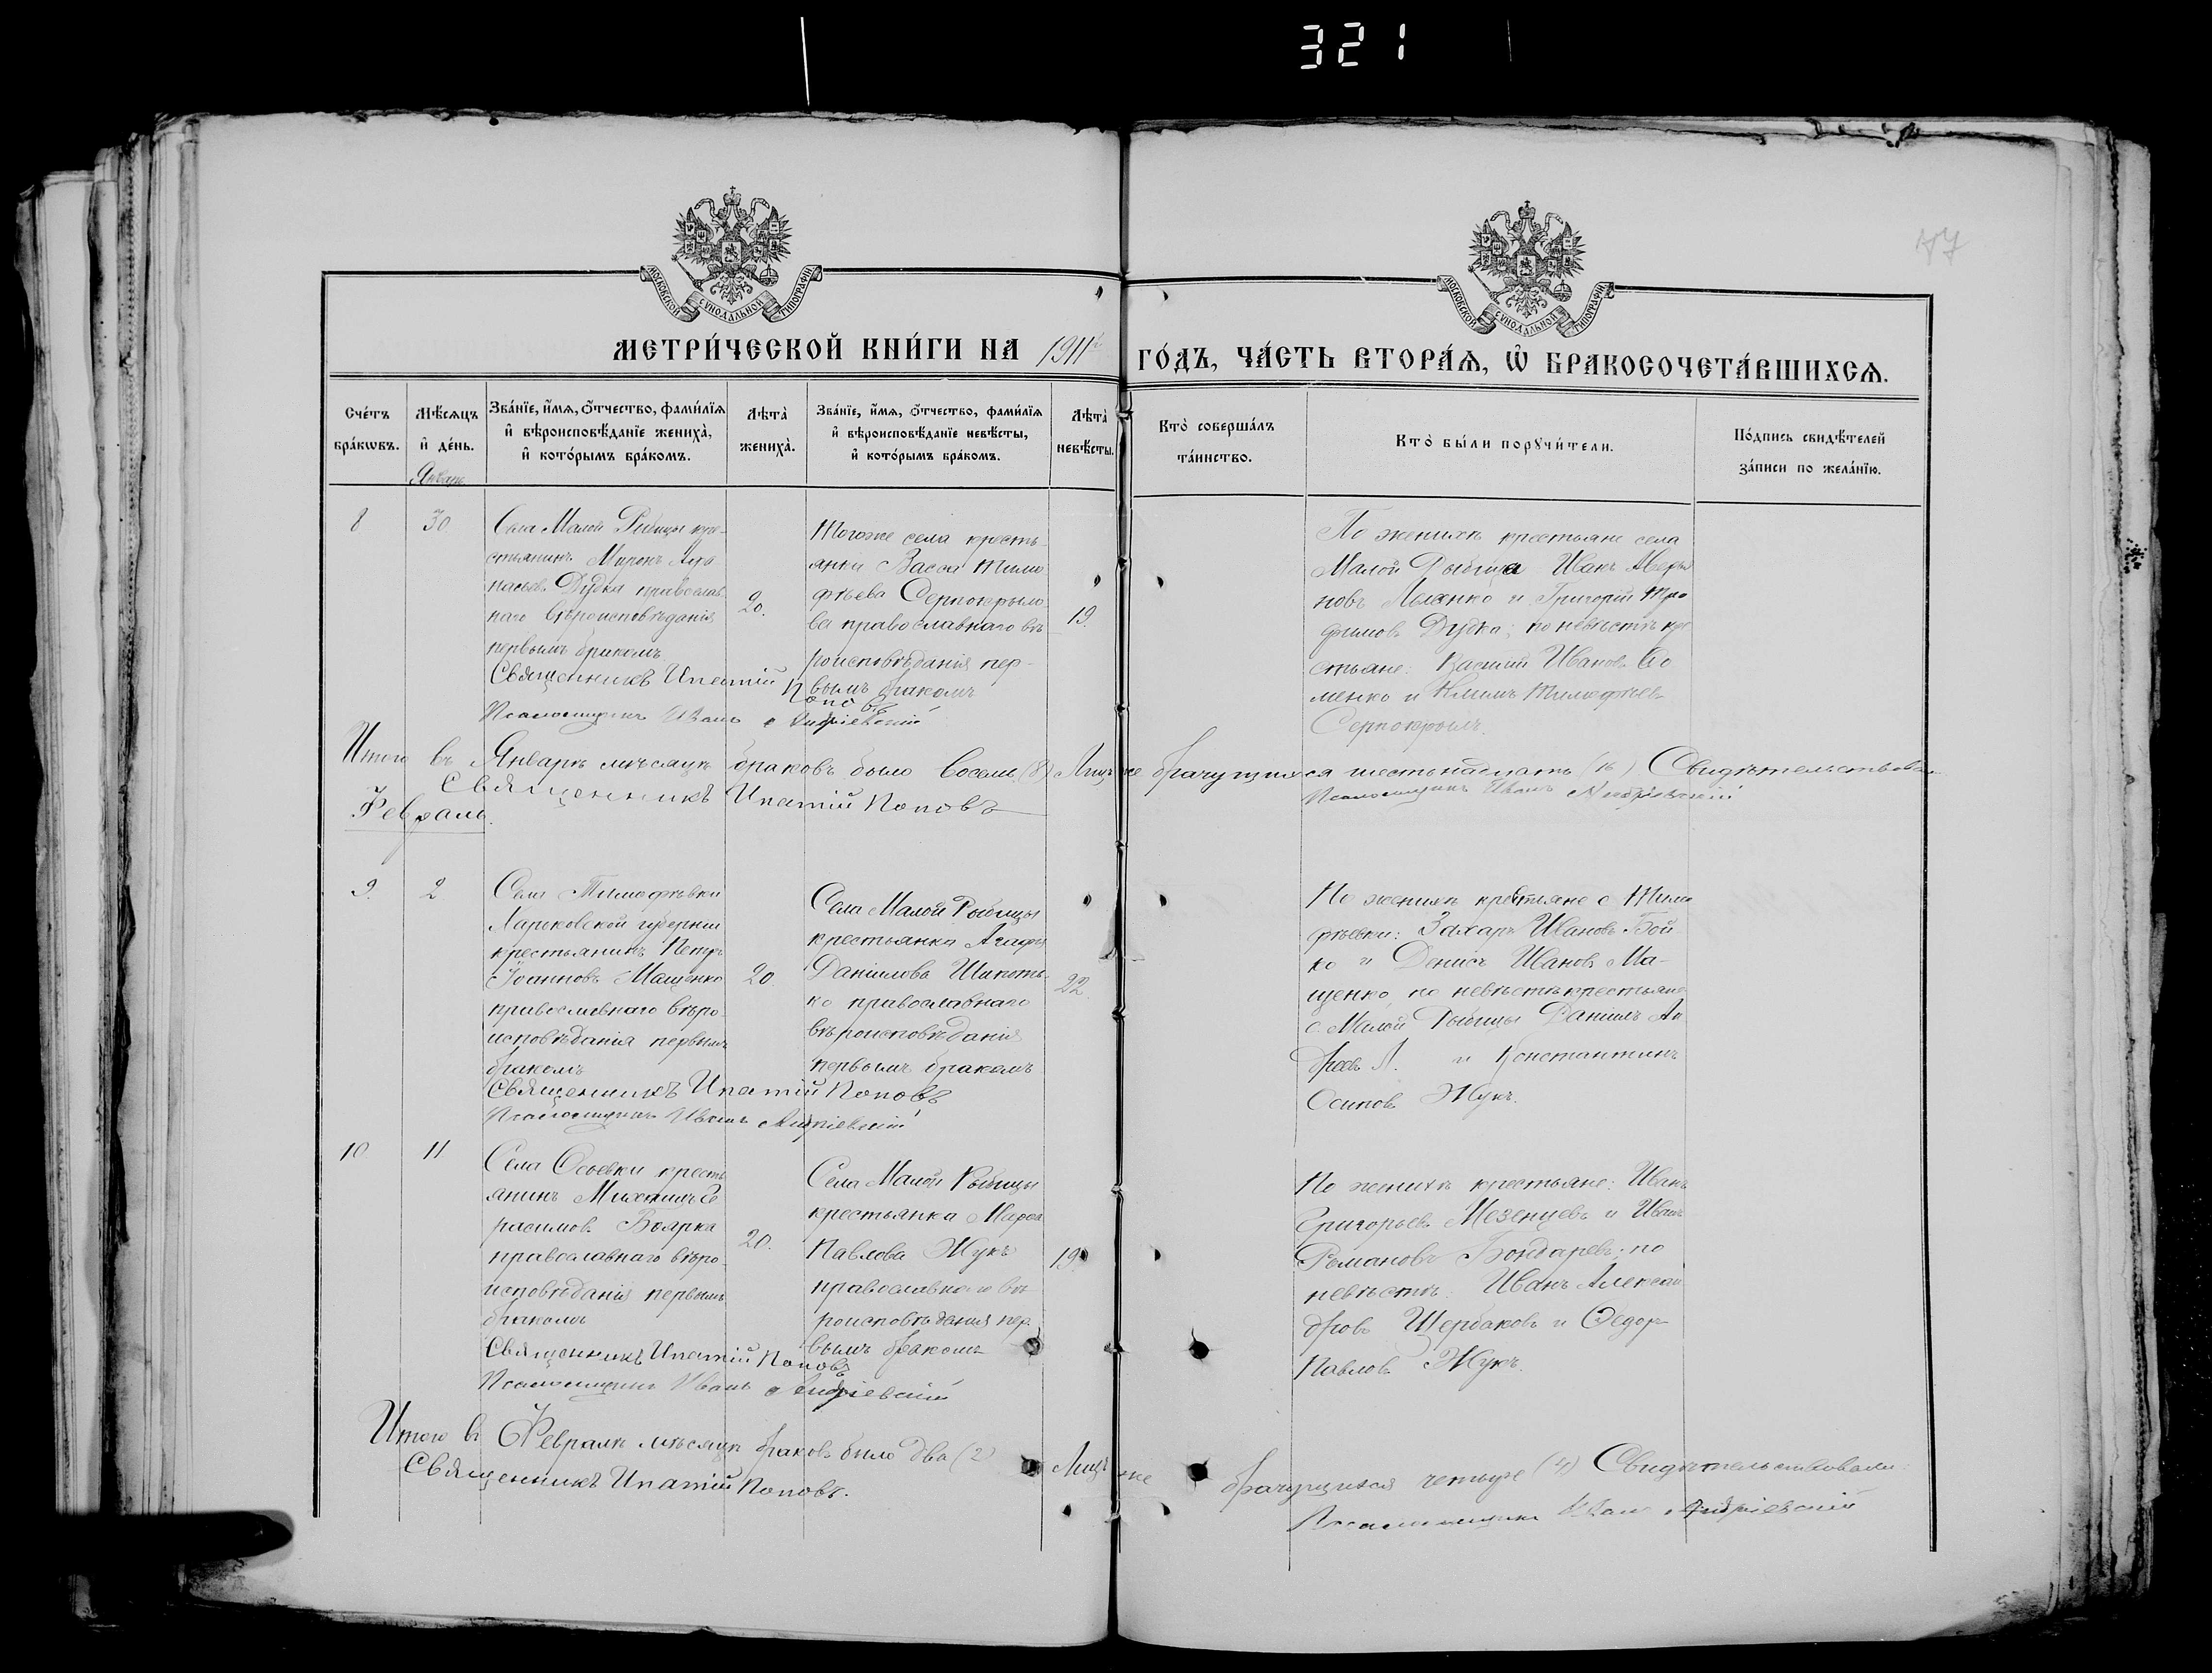 321
77
МОСКОВСКОЙ СѴНОДАЛЬНОЙ ТИПОГРАФІИ
МОСКОВСКОЙ СѴНОДАЛЬНОЙ ТИПОГРАФІИ
МЕТРИ́ЧЕСКОЙ КНИ́ГИ НА 1911й ГО́ДЪ, ЧА́СТЬ ВТОРА́Ѧ, Ѽ БРАКОСОЧЕТА́ВШИХСѦ.
Сче́тъ
бра́кѡвъ.
Мѣ́сѧцъ
и҆ де́нь.
Январь
Зва́нїе, и҆́мѧ, ѻ҆́тчество, фами́лїѧ
и҆ вѣроисповѣ́данїе жениха̀,
и҆ кото́рымъ бра́комъ.
Лѣта̀
жениха̀.
Зва́нїе, и҆́мѧ, ѻ҆́тчество, фами́лїѧ
и҆ вѣроисповѣ́данїе невѣ́сты,
и҆ кото́рымъ бра́комъ.
Лѣта̀
невѣ́сты.
Кто̀ соверша́лъ
та́инство.
Кто̀ бы́ли порꙋчи́тели.
По́дпись свидѣ́телей
за́писи по жела́нїю.
8
30
Села Малой Рыбицы кре-
стьянинъ Миронъ
Дудка православ-
наго вѣроисповѣданія
первымъ бракомъ
20.
Тогоже села кресть-
янка Васса Тимо
фѣева Серпокрыло-
ва православнаго вѣ
роисповѣданія пер-
вымъ бракомъ
19.
По женихѣ крестьяне села
Малой Рыбицы Иванъ Аверья
новъ и Григорій Тро
фимовъ Дудка; по невѣстѣ кре
стьяне: Василій Ивановъ
менко и Климъ Тимофѣевъ
Серпокрылъ.
Священникъ Ипатій Поповъ
Псаломщикъ Иванъ Андріевскій
Итого въ Январѣ мѣсяцѣ браковъ было восемь (8) Лицъ же брачущихся шестьнадцать (16) Свидѣтельствовали
Священникъ Ипатій Поповъ
Псаломщикъ Иванъ Андріевскій
Февраль.
9.
2
Села Тимофѣевки
Харьковской губерніи
крестьянинъ Петръ
Іоанновъ Мащенко
православнаго вѣро-
исповѣданія первымъ
бракомъ
20.
Села Малой Рыбицы
крестьянка Агафія
Даніилова Шикоть-
ко православнаго
вѣроисповѣданія
первымъ бракомъ
22.
По женихѣ крестьяне с Тимо
фѣевки: Захаръ Ивановъ Бой-
ко и Денисъ Ивановъ Ма-
щенко, по невѣстѣ крестьяне
с. Малой Рыбицы Даніилъ Ан
дреевъ и Константинъ
Осиповъ Жукъ.
Священникъ Ипатій Поповъ
Псаломщикъ Иванъ Андріевскій
10
11
Села Осоевки кресть
янинъ Михаилъ Ге
расимовъ Боярка
православнаго вѣро-
исповѣданія первымъ
бракомъ
20.
Села Малой Рыбицы
крестьянка Марѳа
Павлова Жукъ
православнаго вѣ
роисповѣданія пер-
вымъ бракомъ
19
По женихѣ крестьяне: Иванъ
Григорьевъ Мезенцевъ и Иванъ
Романовъ Бондаревъ; по
невѣстѣ: Иванъ Алексан
дровъ Щербаковъ и Ѳедоръ
Павловъ Жукъ.
Священникъ Ипатій Поповъ
Псаломщикъ Иванъ Андріевскій
Итого въ Февралѣ мѣсяцѣ браковъ было два (2) Лицъ же брачущихся четыре (4) Свидѣтельствовали:
Священникъ Ипатій Поповъ.
Псаломщикъ Иванъ Андріевскій